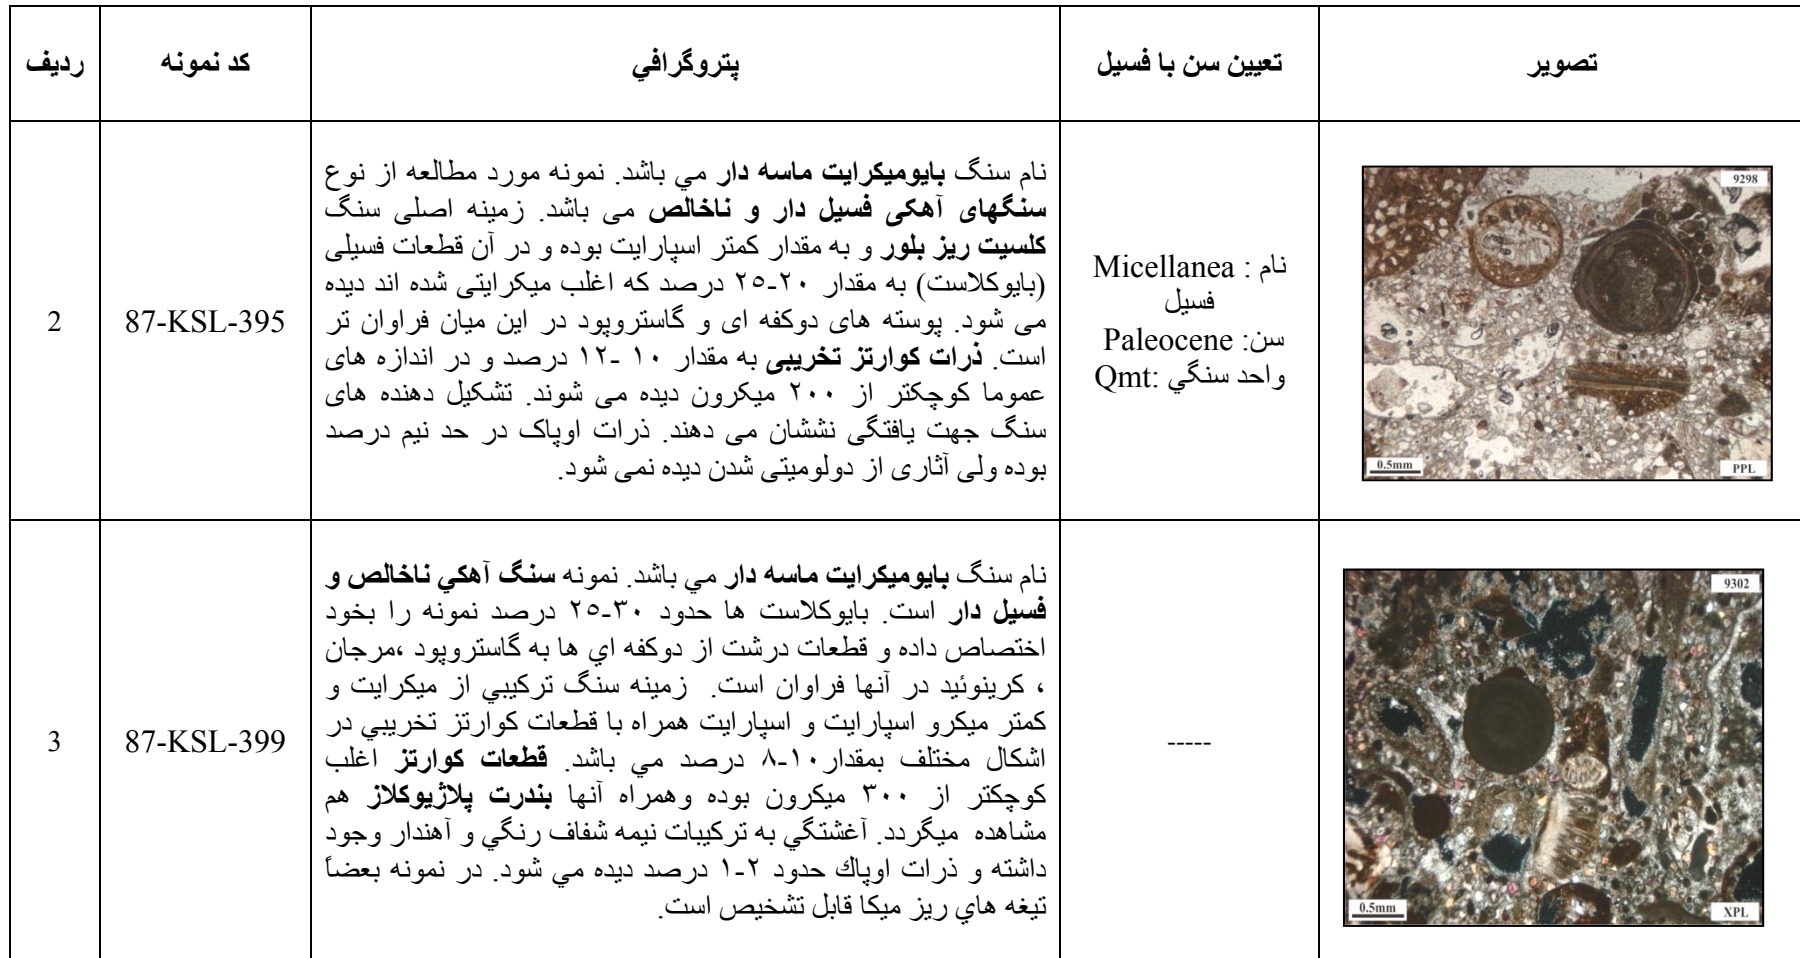 ردیف
کد نمونه
پتروگرافي
تعیین سن با فسیل
تصویر
2
87-KSL-395
نام سنگ بایومیکرایت ماسه دار مي باشد. نمونه مورد مطالعه از نوع
سنگهای آهکی فسیل دار و ناخالص می باشد. زمینه اصلی سنگ
کلسیت ریز بلور و به مقدار کمتر اسپارایت بوده و در آن قطعات فسیلی
(بایوکلاست) به مقدار ۲۰-۲۵ درصد که اغلب میکرایتی شده اند دیده
می شود. پوسته های دوکفه ای و گاستروپود در این میان فراوان تر
است. ذرات کوارتز تخریبی به مقدار ۱۰ -۱۲ درصد و در اندازه های
عموما کوچکتر از ۲۰۰ میکرون دیده می شوند. تشکیل دهنده های
سنگ جهت یافتگی نششان می دهند. ذرات اوپاک در حد نیم درصد
بوده ولی آثاری از دولومیتی شدن دیده نمی شود.
نام : Micellanea
فسیل
سن: Paleocene
واحد سنگي :Qmt
9298
0.5mm
PPL
3
87-KSL-399
نام سنگ بایومیکرایت ماسه دار مي باشد. نمونه سنگ آهکي ناخالص و
فسیل دار است. بایوکلاست ها حدود ۳۰-۲۵ درصد نمونه را بخود
اختصاص داده و قطعات درشت از دوکفه اي ها به گاستروپود ،مرجان
، کرینوئید در آنها فراوان است. زمینه سنگ ترکیبي از میکرایت و
کمتر میکرو اسپارایت و اسپارایت همراه با قطعات کوارتز تخریبي در
اشکال مختلف بمقدار۱۰-۸ درصد مي باشد. قطعات کوارتز اغلب
کوچکتر از ۳۰۰ میکرون بوده وهمراه آنها بندرت پلاژیوکلاز هم
مشاهده میگردد. آغشتگي به ترکیبات نیمه شفاف رنگي و آهندار وجود
داشته و ذرات اوپاك حدود ۲-۱ درصد دیده مي شود. در نمونه بعضاً
تیغه هاي ریز میکا قابل تشخیص است.
-----
9302
0.5mm
XPL